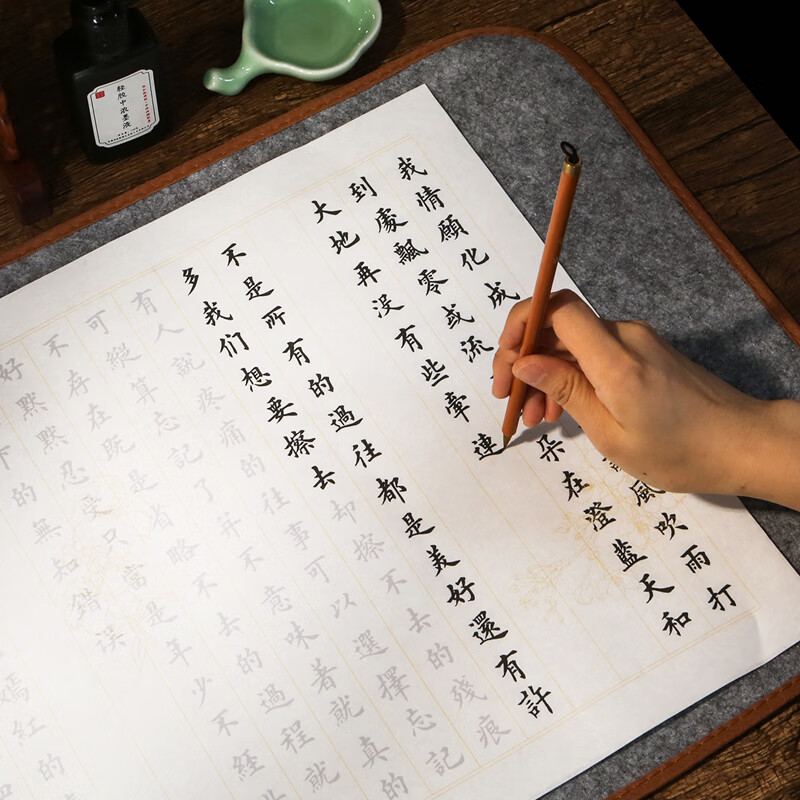 轻胶中浓墨液
我情願化成風吹雨打
到處飄零或流朵在澄藍天和
大地再沒有些牽連
不是所有的過往都是美好還有許
多我们想要擦去却擦不去的殘痕
有人就疼痛的往事可以選擇忘記
可縱算忘記了并不意味着就真的
不存在既是省略不去的過程就
好默默忍受只當是年少不經
下的無知錯误
嫣紅的